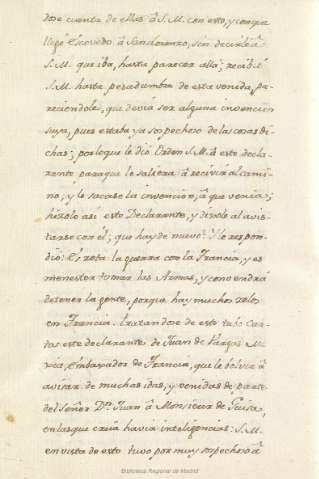 dose cuenta de ellas â S.M. con esto, y como
llegô Escovedo â Santoranzo, sin decirle â
S.M. que iba, hasta parecer alla; recibió
S.M. harta pesadumbre de esta venida, pa-
reciendole, que devia ser alguna invencion
suya, pues estaba ya sospechoso de las cosas di-
chas; por lo que le dió Orden S.M. â este decla-
rante para que le saliera â recivir al cami-
no, y le sacase la invencion, â que venia;
hizolo asi este Declarante, y dixole al avis-
tarse con él; que hay de nuevo? Y le respon-
dió: Es rota la guerra con la Francia, y es
menester tomar las Armas, y convendrá
detener la gente, porque hay muchos
en Francia. Tratandose de esto tubo Car-
tas este declarante de Juan de Vargas Me-
xia, Embaxador de Francia, que le bolvia â
avisar de muchas idas, y venidas de parte
del Señor Dn. Juan â Monsieur de Guisa,
en las que creía havia inteligencias: S.M.
en vista de esto tuvo por muy sospechoso â
Biblioteca Regional de Madrid